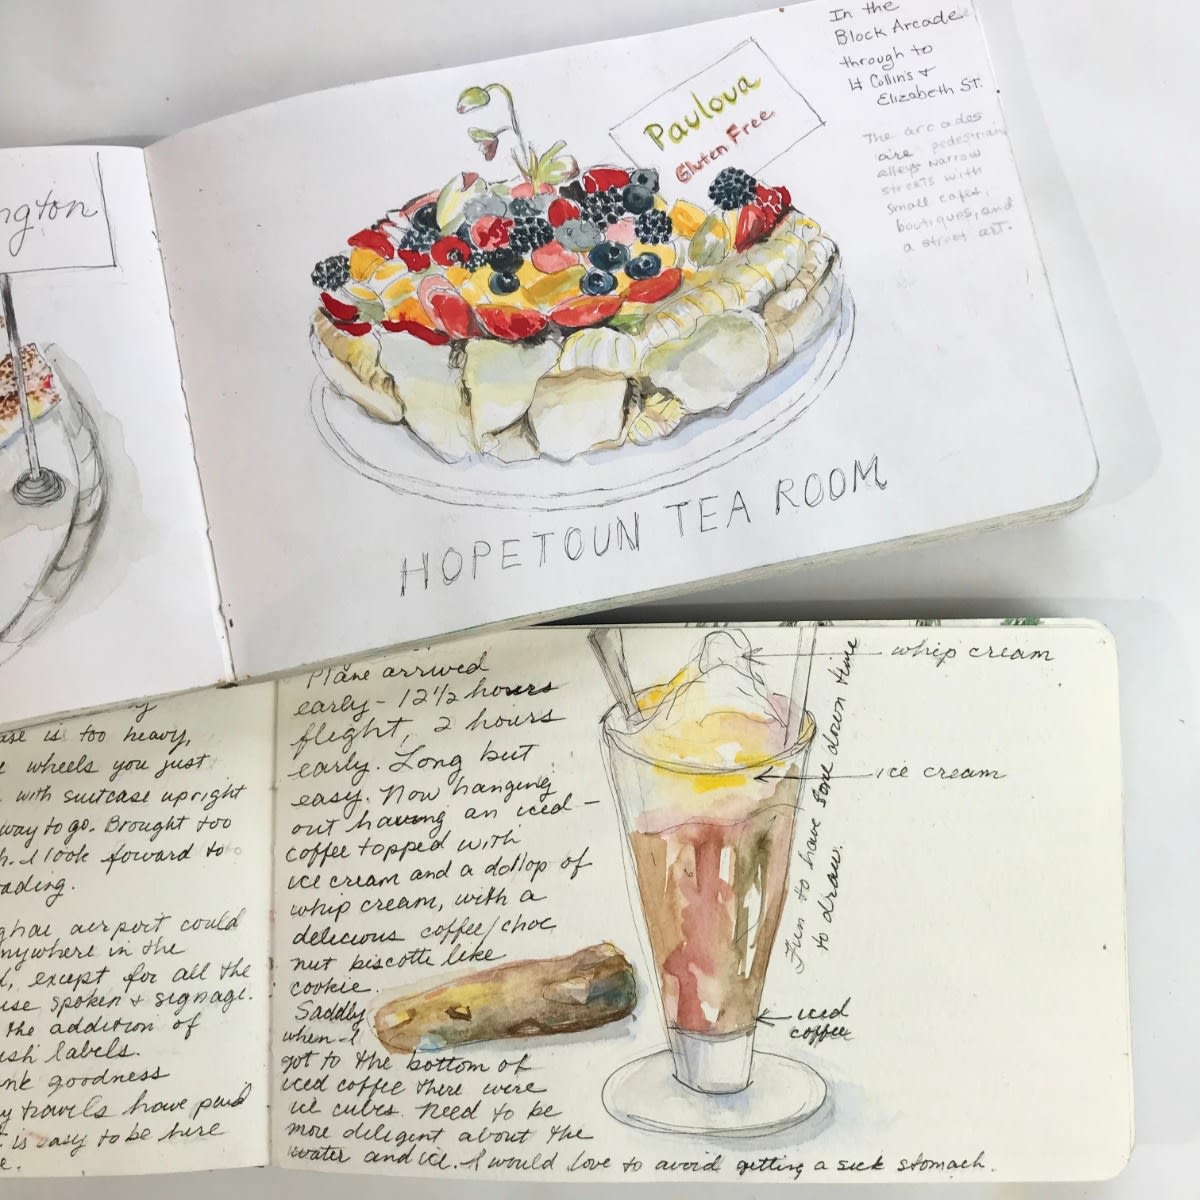 ngton
Pavlova
Gluten Free
In the
Block Arcade
through to
Lt Collins &
Elizabeth St.
The arcades
are pedestrian
alleys narrow
streets with
small cafes,
boutiques, and
a street art.
HOPETOUN TEA ROOM
ase is too heavy,
wheels you just
with suitcase upright
way to go. Brought too
h. I look foward to
ading.
ghai airport could
nywhere in the
d, except for all the
use spoken & signage.
the addition of
ish labels.
nk goodness
y travels have paid
t is easy to be here
e.
Plane arrived
early - 12 1/2 hours
flight, 2 hours
early. Long but
easy. Now hanging
out having an iced -
coffee topped with
ice cream and a dollop of
whip cream, with a
delicious coffee/choc
nut biscotti like
cookie.
Saddly
when I
got to the bottom of
iced coffee there were
ice cubes. Need to be
more diligent about the
water and ice. I would love to avoid getting a sick stomach.
whip cream
ice cream
iced
coffee
Fun to have some down time
to draw.